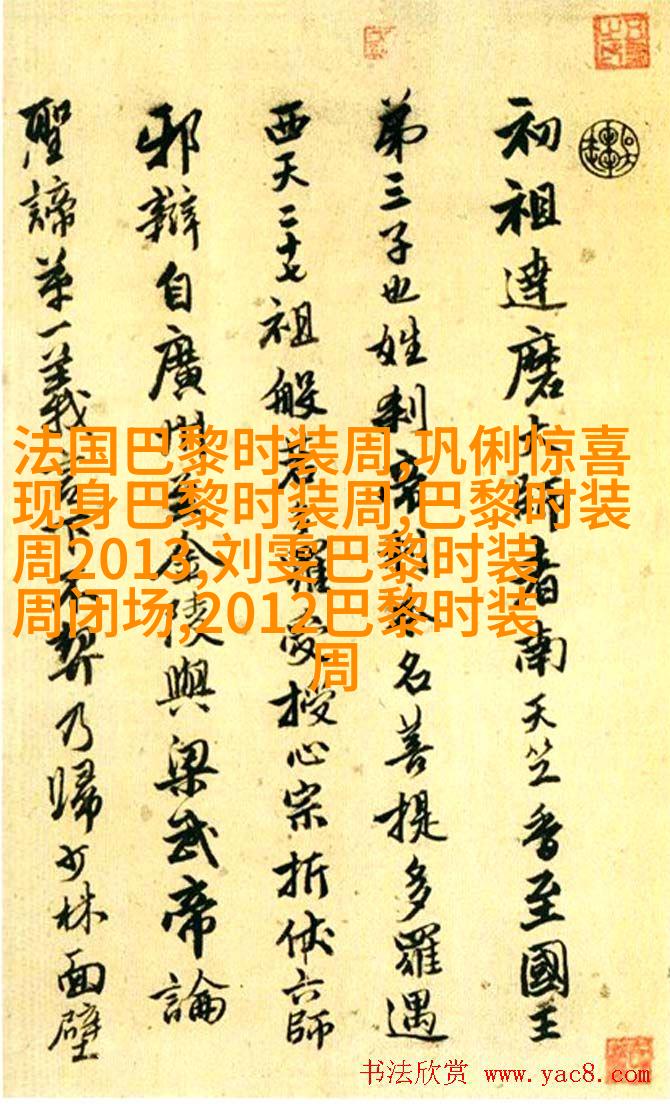 初祖達磨大師者南天竺香至國王
弟三子也姓刹帝利本名菩提多羅遇
西天二十七祖般若多羅受授心宗折伏六師
邪辯自廣州至金陵與梁武帝論
聖諦苐一義言下不契乃歸少林面壁
法国巴黎时装周,巩俐惊喜
现身巴黎时装周,巴黎时装
周2013,刘雯巴黎时装
周闭场,2012巴黎时装
周
书法欣赏 www.yac8.com